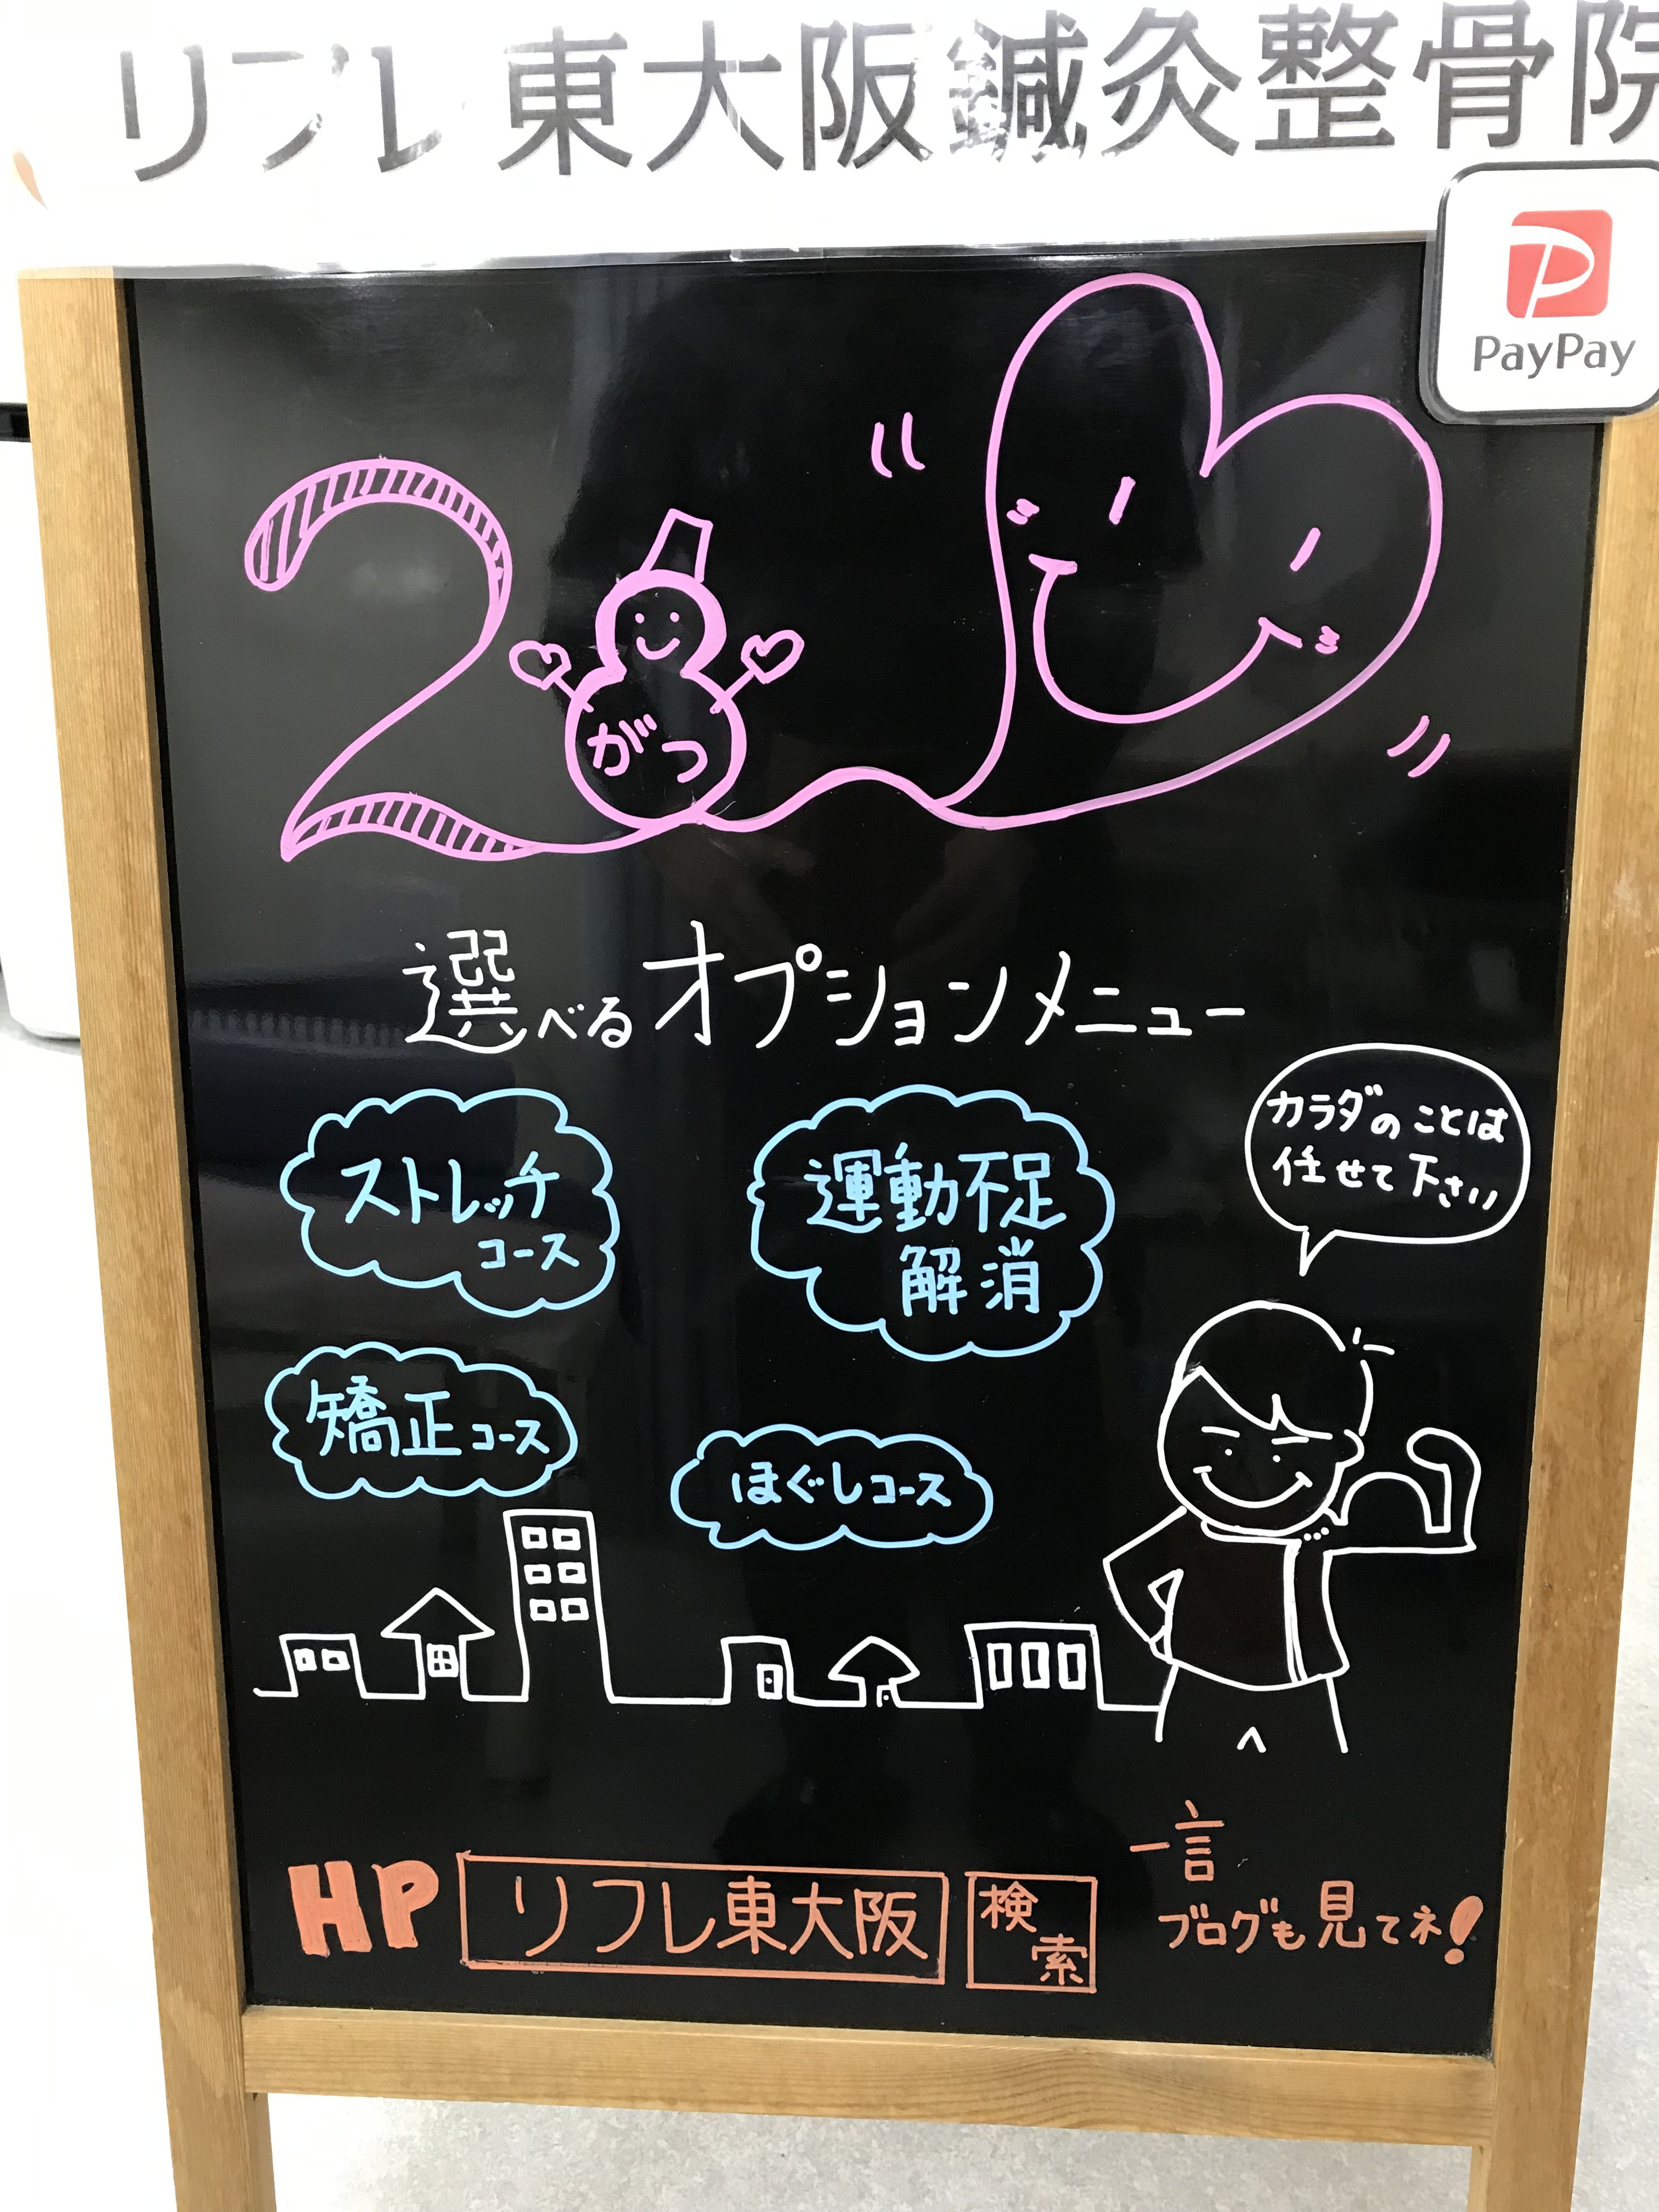 リフレ東大阪鍼灸整骨院
PayPay
2がつ
選べるオプションメニュー
カラダのことは
任せて下さい
ストレッチ
コース
運動不足
解消
矯正コース
ほぐしコース
一言
ブログも見てネ!
HP リフレ東大阪 検索